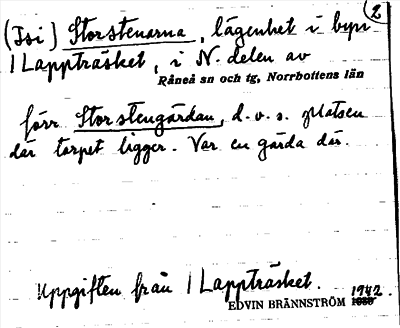 (2
(Isi) Storstenarna, lägenhet i byn
1 Lappträsket, i N. delen av
Råneå sn och tg, Norrbottens län
förr Storstengärdan, d.v.s. platsen
där torpet ligger. Var en gärda där.
Uppgiften från 1 Lappträsket.
1942.
EDVIN BRÄNNSTRÖM